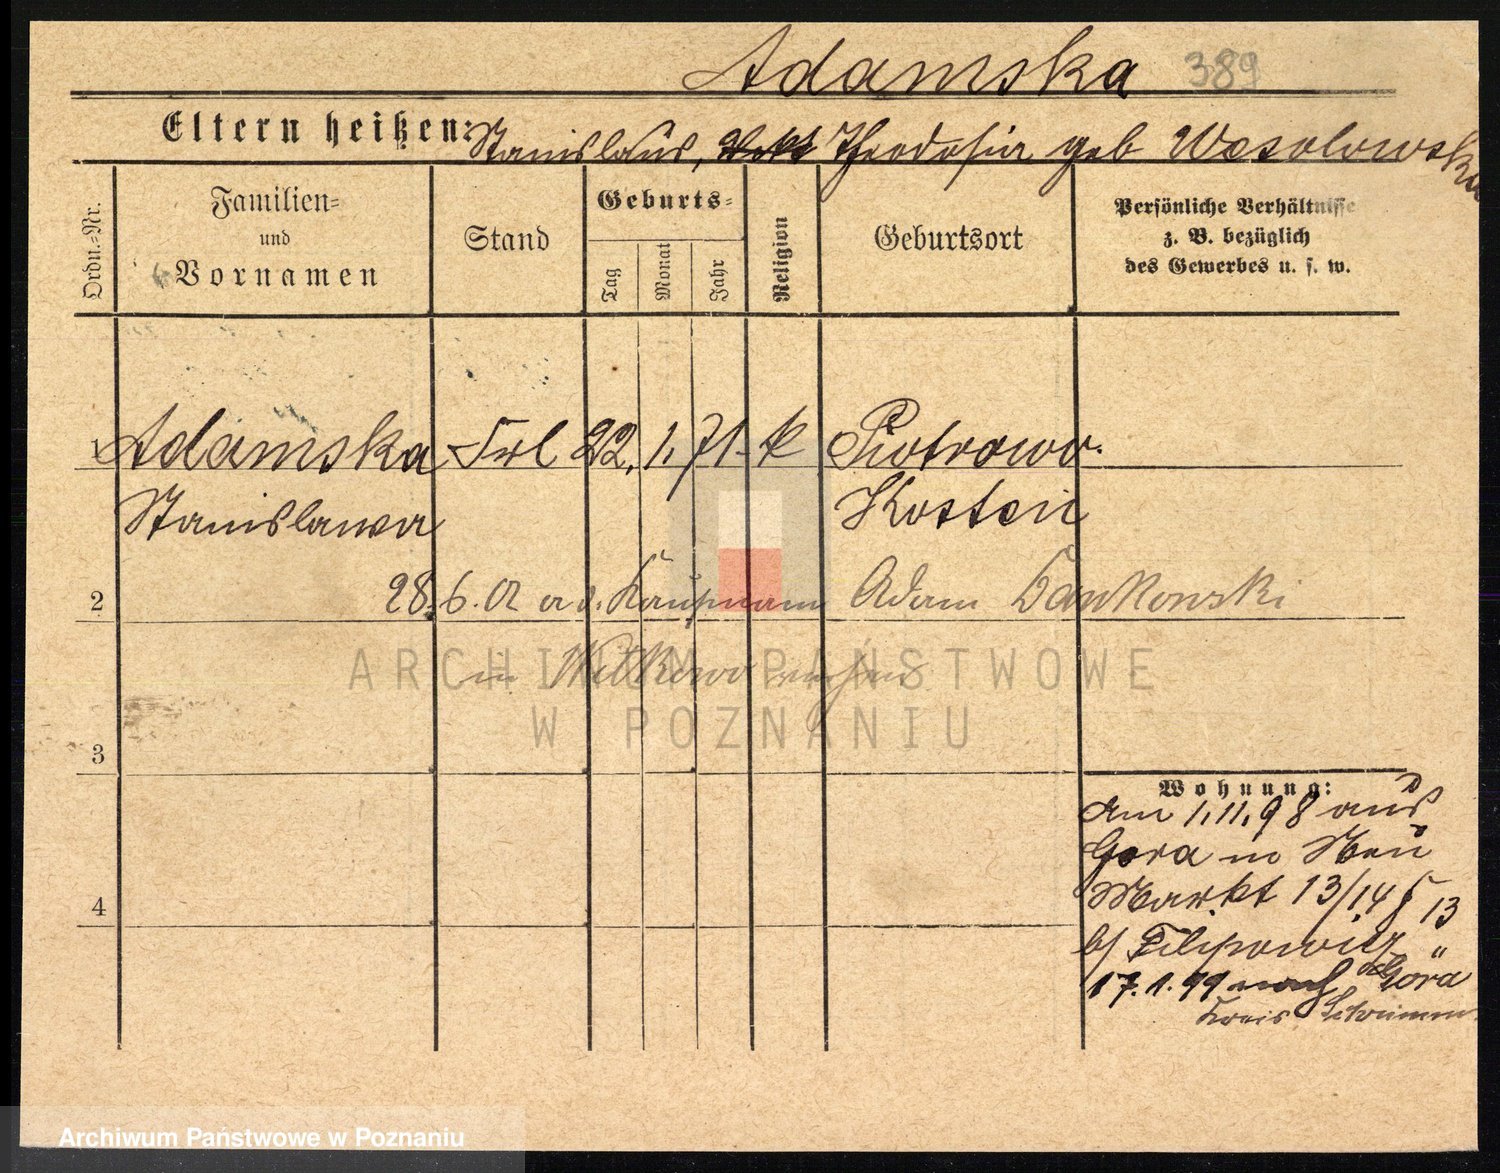 Adamska 389
Eltern heißen: Stanislaus, Theodosia geb Wesolowska
Ordn.=Nr.
Familien=
und
Vornamen
Stand
Geburts=
Tag
Monat
Jahr
Religion
Geburtsort
Persönliche Verhältnisse
z. B. bezüglich
des Gewerbes u. s. w.
1 Adamska Frl 22. 1. 71 k Piotrowo
Stanislawa Kosten
2 28.6.02 a. d. Kaufmann Adam
in Witkowo
ARCHIWUM PAŃSTWOWE
W POZNANIU
3
Wohnung:
am 1.11.98 aus
Gora in Neu
Markt 13/14 13
b/ Filipowicz "
17.1.99 nach Góra
Kreis Schrimm
4
Archiwum Państwowe w Poznaniu